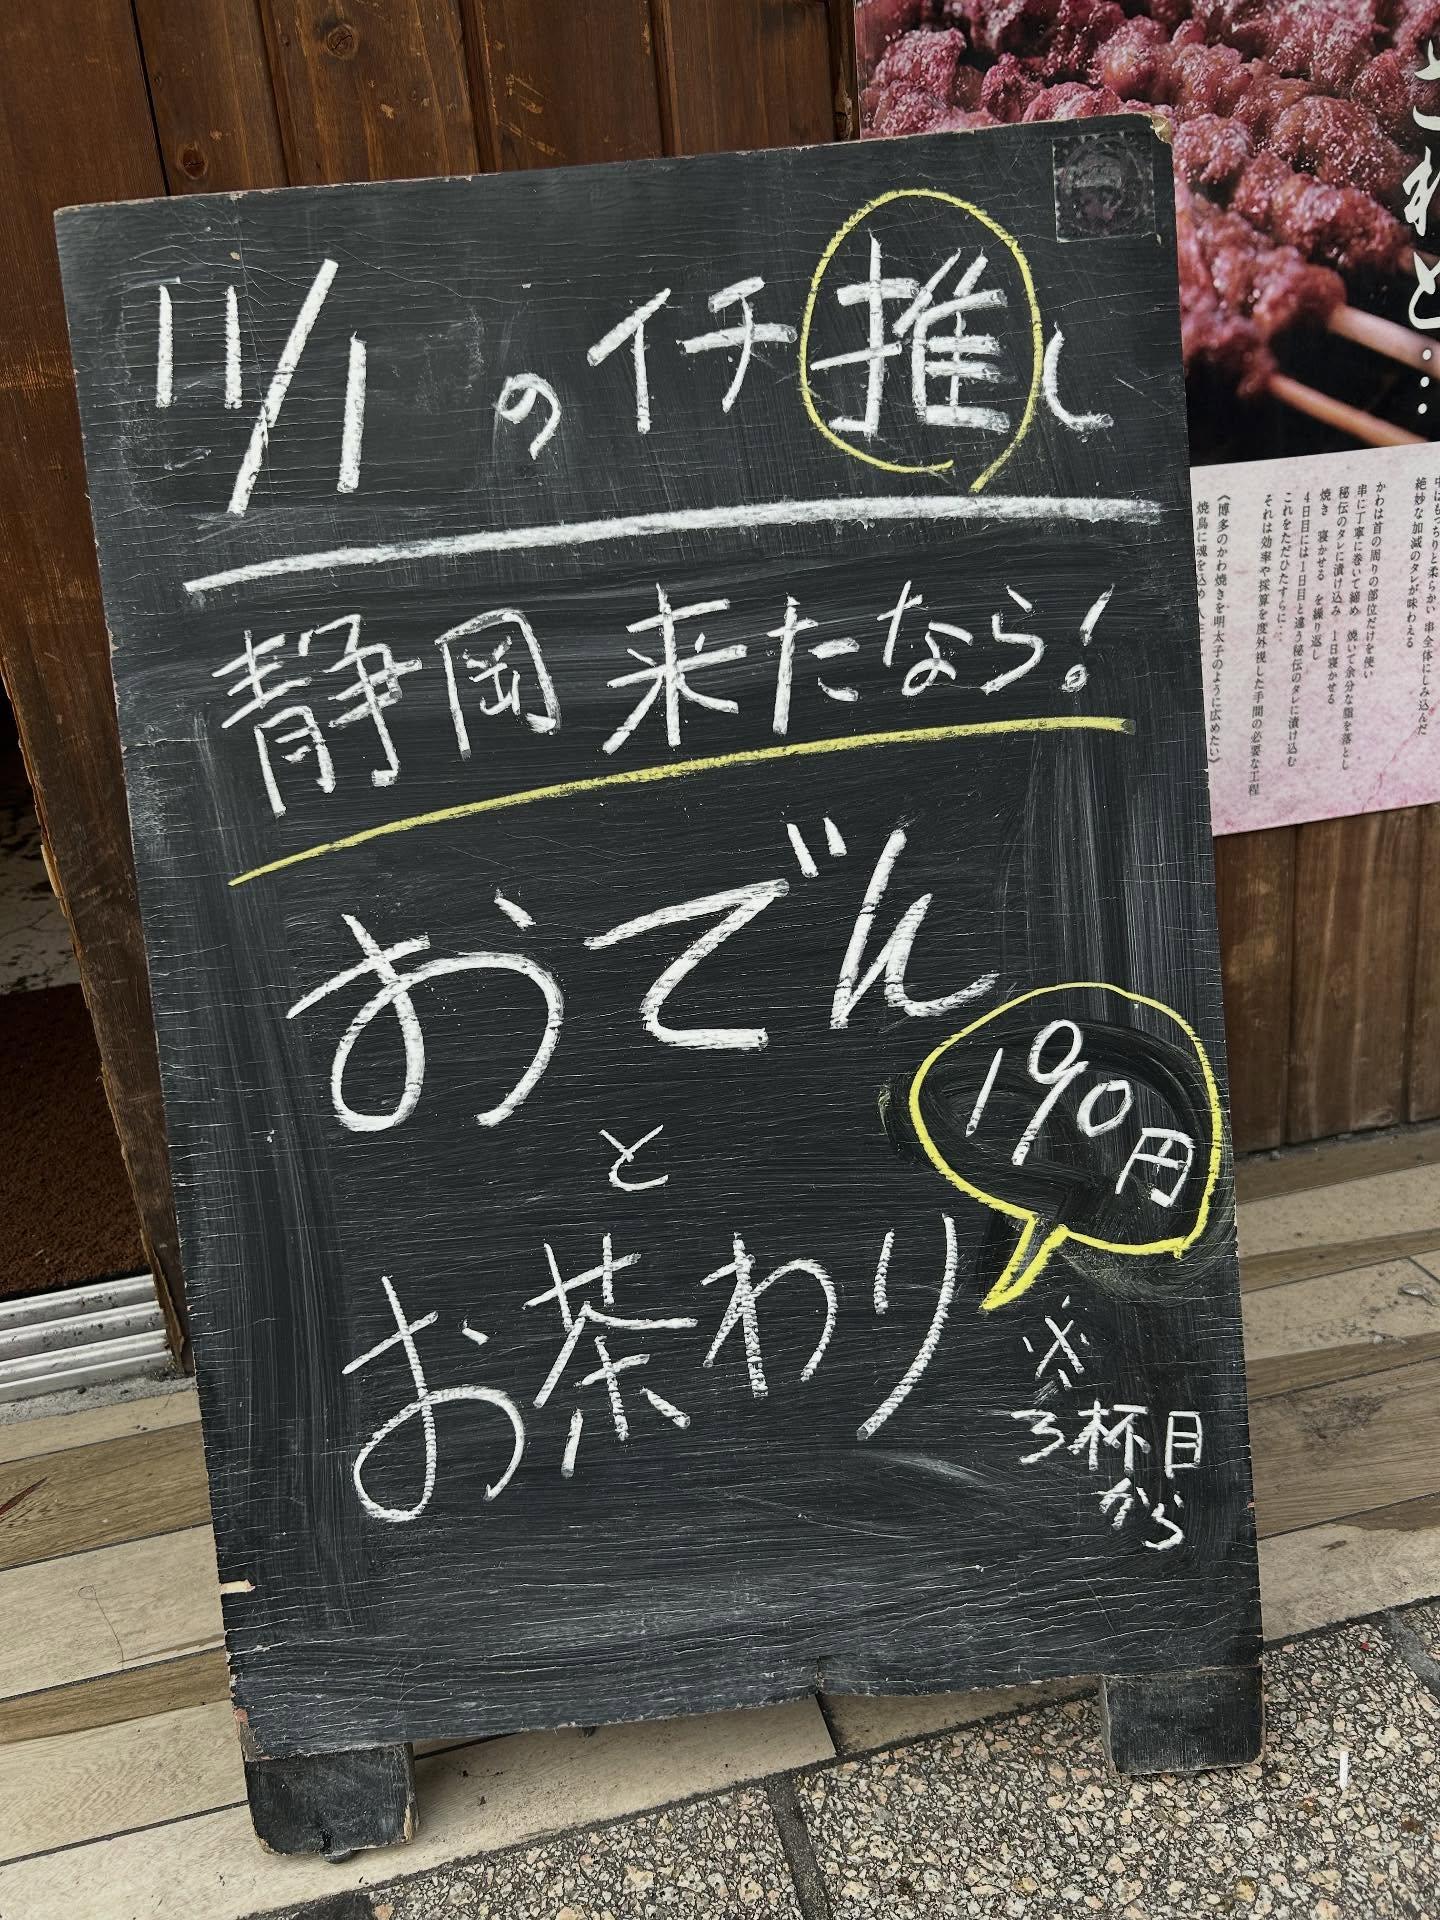 11/1のイチ推し
静岡来たなら!
おでん
と
お茶わり
190円
※
3杯目
から
これと...
絶妙な加減のタレが味わえる
かわは首の周りの部位だけを使い
串に丁寧に巻いて締め 焼いて余分な脂を落とし
秘伝のタレに漬け込み 1日寝かせる
焼き 寝かせる を繰り返し
4日目には1日目と違う秘伝のタレに漬け込む
これをただひたすらに…
それは効率や採算を度外視した手間の必要な工程
《博多のかわ焼きを明太子のように広めたい》